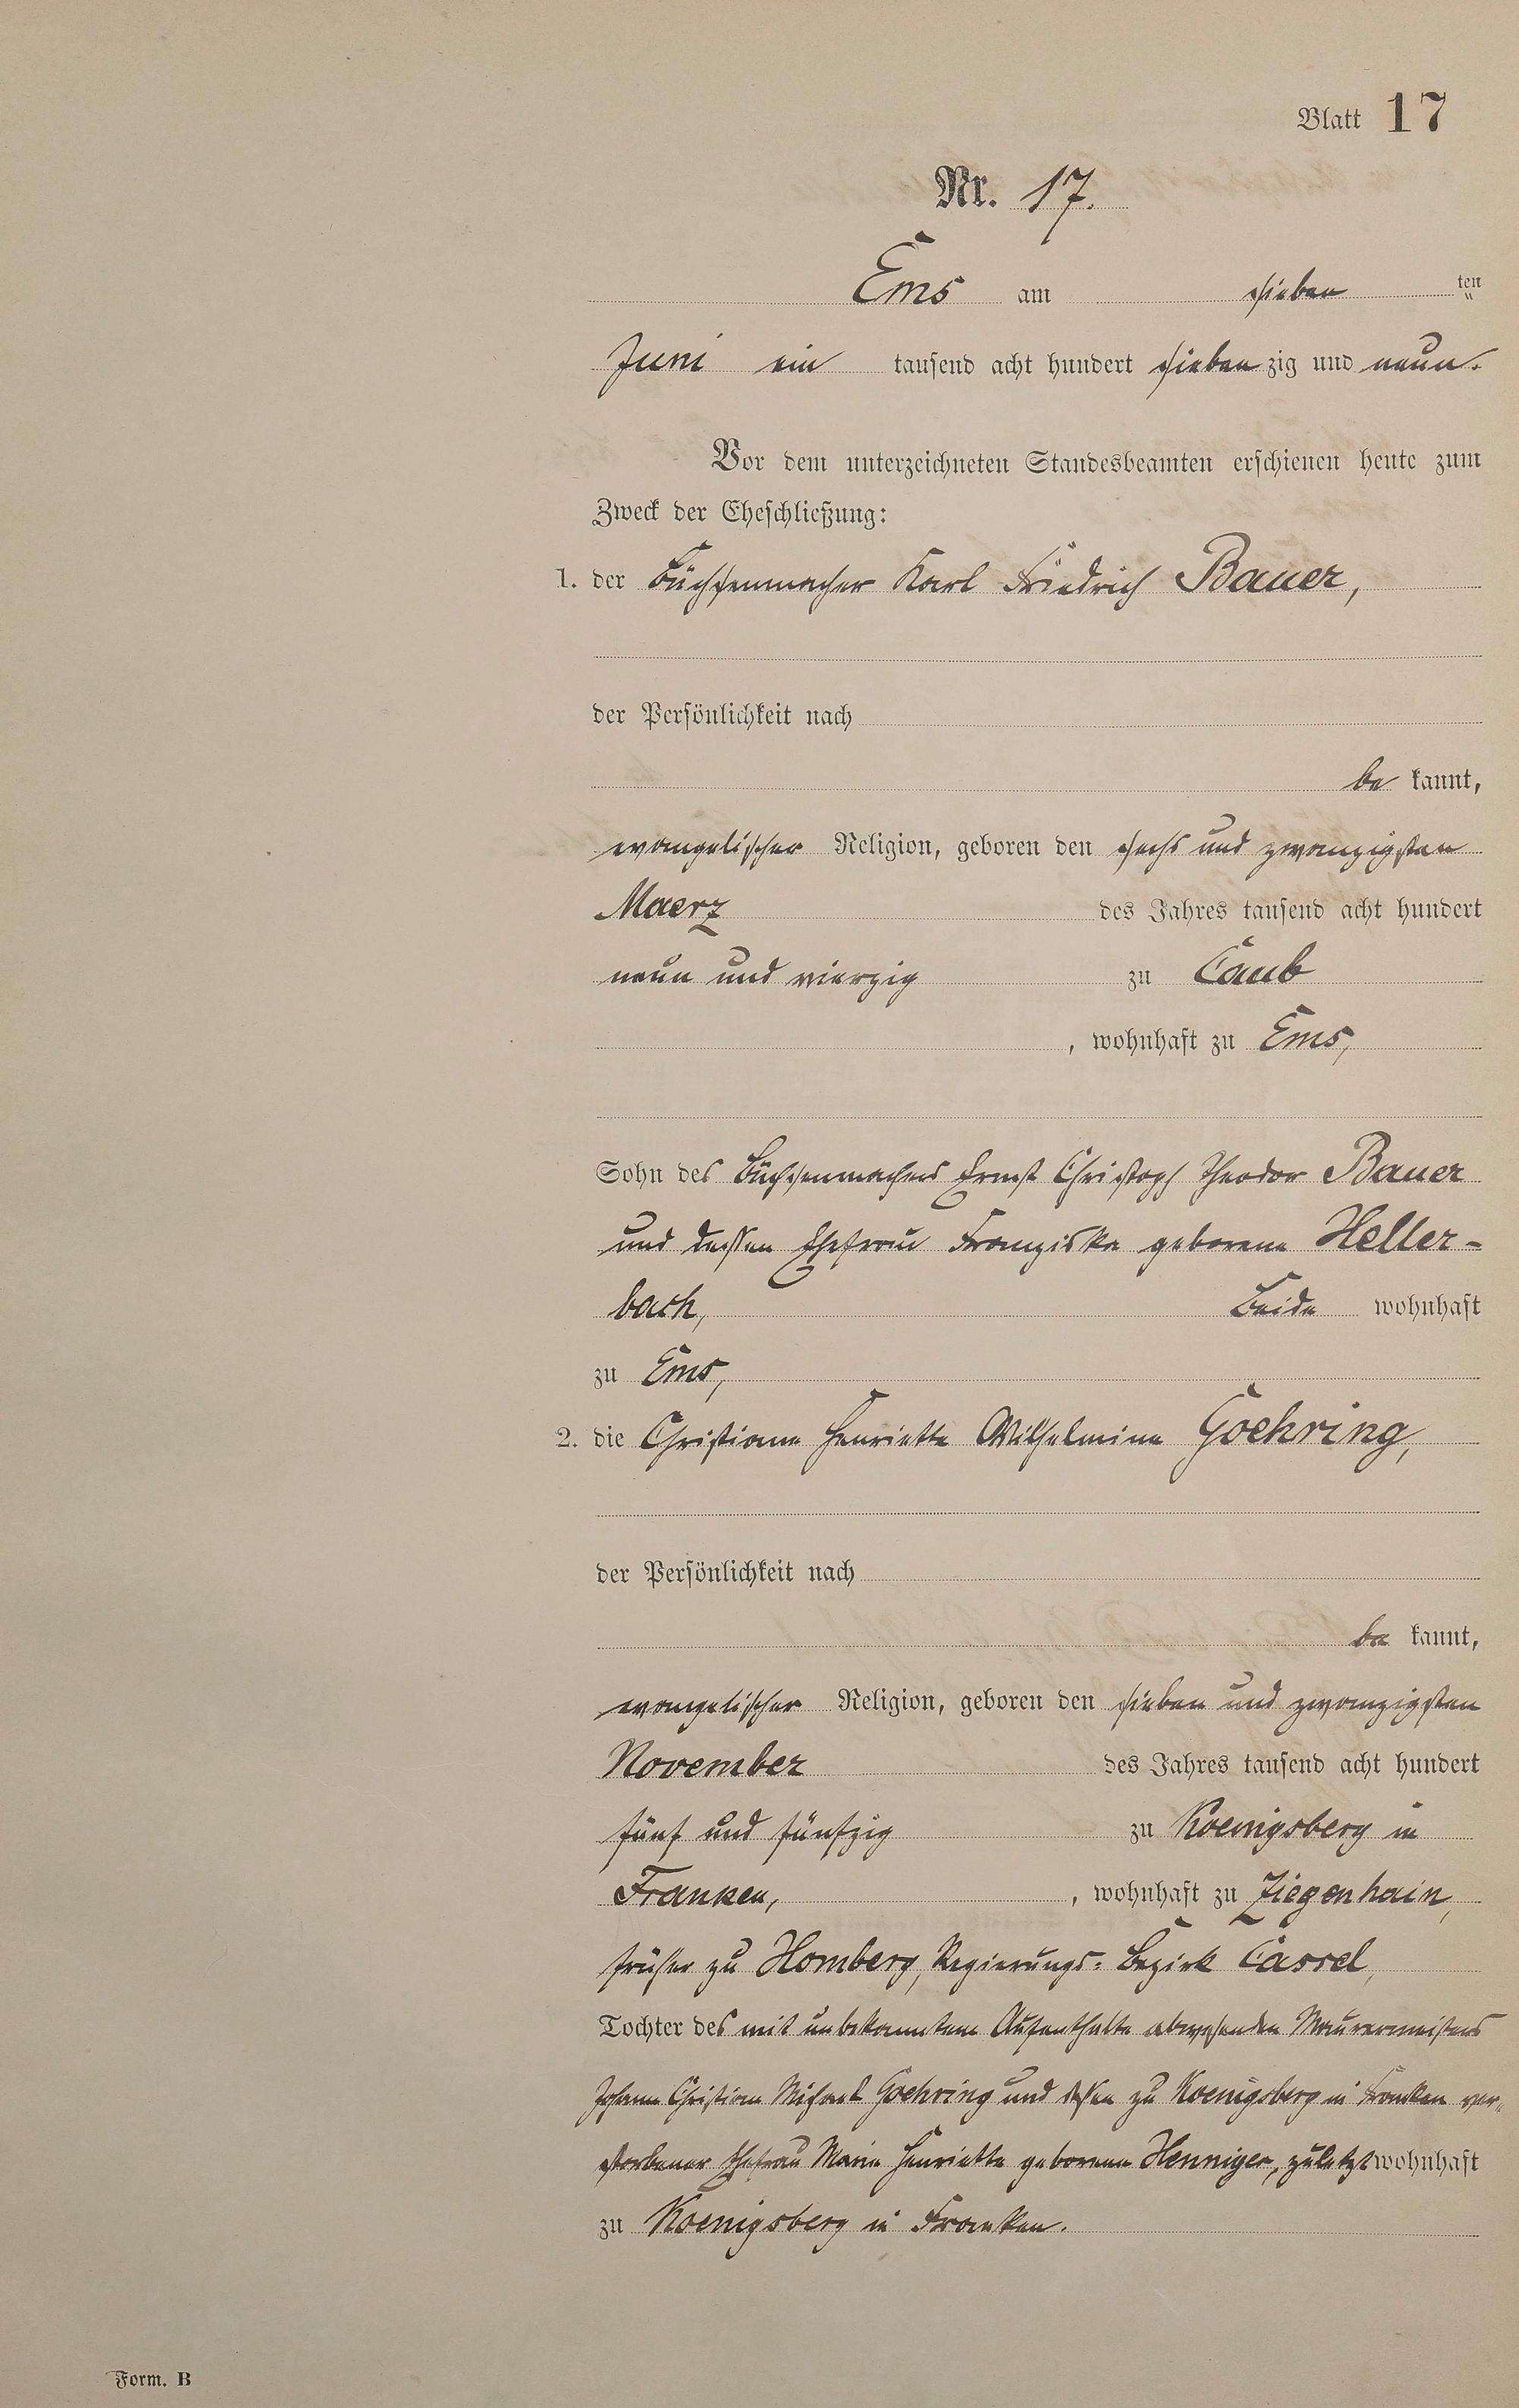 Blatt 17
Nr. 17.
Ems am sieben ten
Juni ein tausend acht hundert siebenzig und neun.
Vor dem unterzeichneten Standesbeamten erschienen heute zum
Zweck der Eheschließung:
1. der Büchsenmacher Karl Friedrich Bauer,
der Persönlichkeit nach
be kannt,
evangelischer Religion, geboren den sechs und zwanzigsten
Maerz des Jahres tausend acht hundert
neun und vierzig zu Caub
, wohnhaft zu Ems,
Sohn des Büchsenmachers Ernst Christoph Theodor Bauer
und dessen Ehefrau Franziska geborene Heller-
bach, Beide wohnhaft
zu Ems,
2. die Christiane Henriette Wilhelmine Goehring,
der Persönlichkeit nach
be kannt,
evangelischer Religion, geboren den sieben und zwanzigsten
November des Jahres tausend acht hundert
fünf und fünfzig zu Koenigsberg in
Franken, , wohnhaft zu Ziegenhain,
früher zu Homberg, Regierungs-Bezirk Cassel,
Tochter des mit unbekanntem Aufenthalte abwesenden Maurermeisters
Johann Christian Michael Goehring und dessen zu Koenigsberg in Franken ver-
storbener Ehefrau Marie Henriette geborene Henniger, zuletzt wohnhaft
zu Koenigsberg in Franken.
Form. B